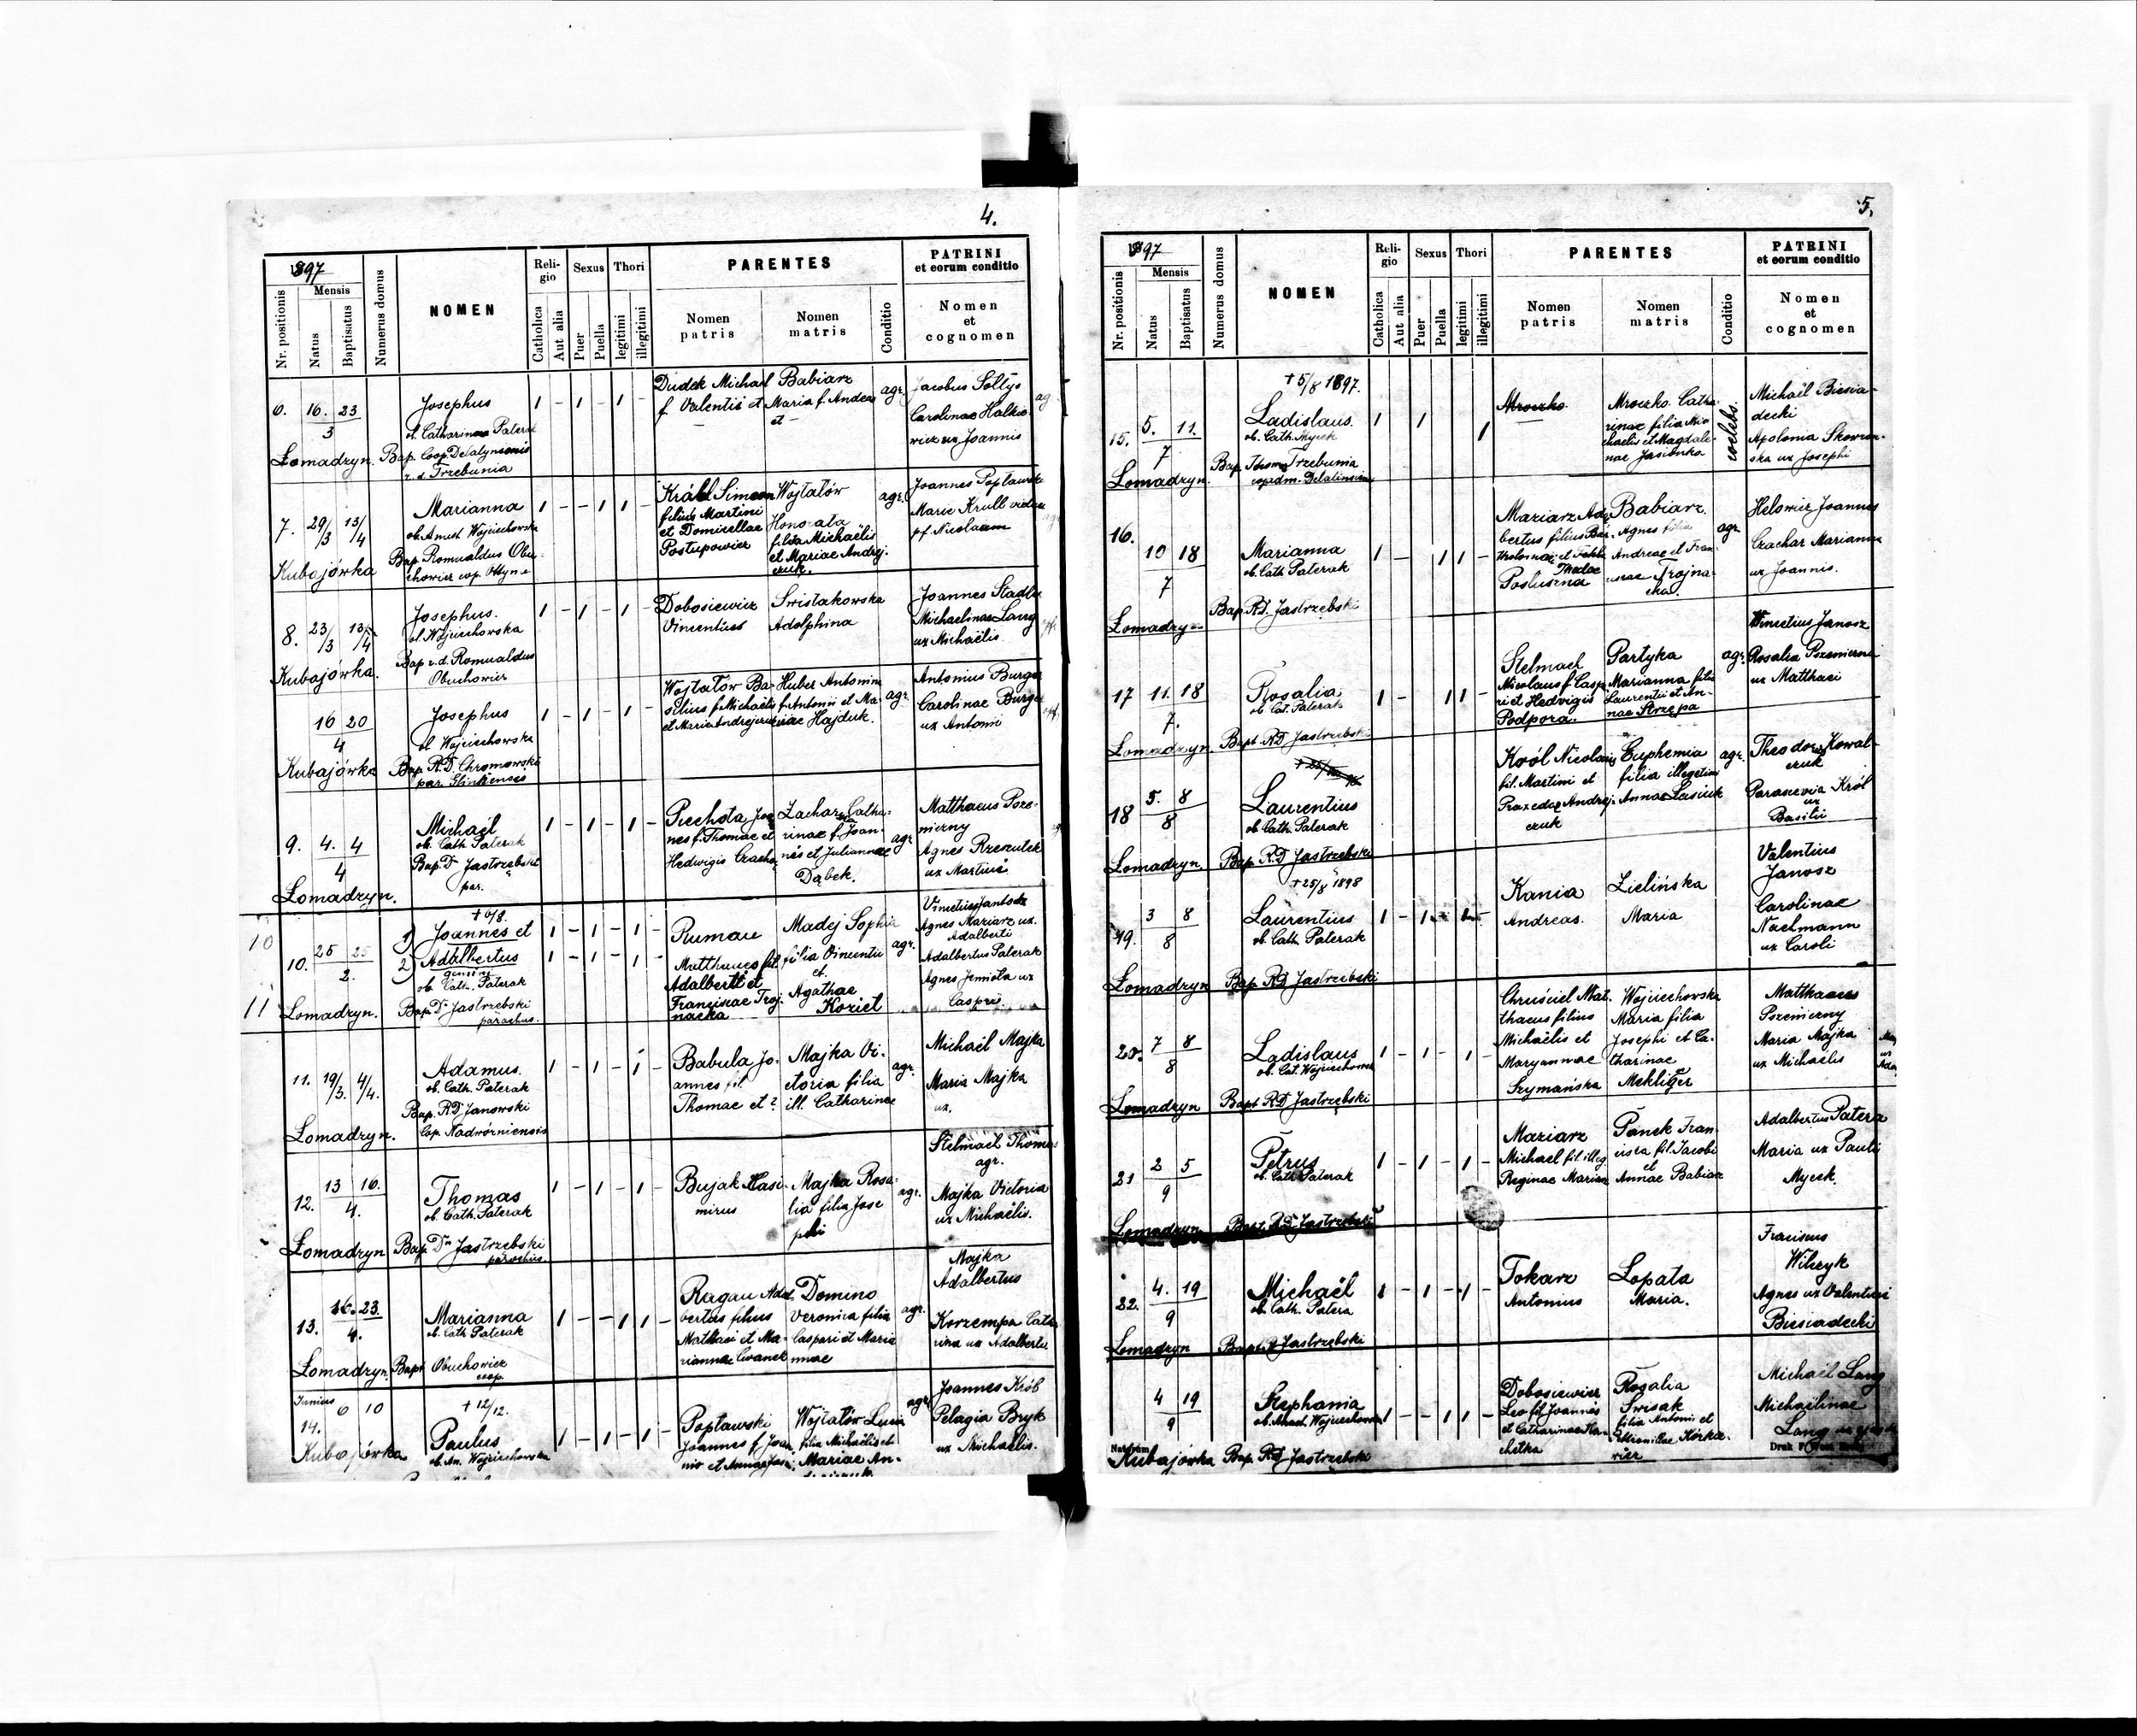 4.
1897
Nr. positionis
Mensis
Natus
Baptisatus
Numerus domus
NOMEN
Reli-
gio
Catholica
Aut alia
Sexus
Puer
Puella
Thori
legitimi
illegitimi
PARENTES
Nomen
patris
Nomen
matris
Conditio
PATRINI
et eorum conditio
Nomen
et
cognomen
6. 16. 23
3
Łomadzyn.
Josephus
ob. Catharina Paterak
Bap. Coop. Delatynensis
r. d. Trzebunia
1 - 1 - 1 -
Dudek Michael
f. Valentii et
Babiarz
Maria f. Andreae
et -
agr.
Jacobus Sołtys
Carolinae Halko
wicz ux Joannis
7. 29/3 13/4
Kubajówka
Marianna
ob. Amal Wojciechowska
Bap. Romualdus Obu-
chowicz cop. Ottyn
1 - - 1 1 -
Król Simeon
filius Martini
et Domicellae
Postupowicz
Wojtatów
Honorata
filia Michaëlis
et Mariae Andrej-
czuk.
agr.
Joannes Popławski
Marie Krull vidua
pf Nicolaum
8. 23/3 13/4
Kubajówka.
Josephus.
ob. Wojciechowska
Bap. r. d. Romualdus
Obuchowicz
1 - 1 - 1 -
Dobosiewicz
Vincentius
Swistakowska
Adolphina
Joannes Stadler
Michaelinae Lang
ux Michaëlis
16 20
4
Kubajówka
Josephus
ob. Wojciechowska
Bap. R.D. Chromowski
par. Glinkensis
1 - 1 - 1 -
Wojtatów Ba-
silius f. Michaëlis
et Maria Andrejczuk
Huber Antonina
f. Antonii et Ma-
riae Hajduk.
agr.
Antonius Burger
Carolinae Burger
ux Antonii
9. 4. 4
4
Łomadzyn.
Michaël
ob. Cath. Paterak
Bap. D. Jastrzębski
par.
1 - 1 - 1 -
Piechota Joa-
nes f. Thomae et
Hedwigis
Zachar Catha-
rinae f. Joan-
nis et Juliannae
Dąbek.
agr.
Matthaeus Psze-
nierny
Agnes Rzeszutek
ux Martini
10
11
10. 25 25
2.
Łomadzyn.
+ 6/8.
1) Joannes et
2) Adalbertus
gemini
ob. Cath. Paterak
Bap. D. Jastrzębski
parochus.
1 - 1 - 1 -
1 - 1 - 1 -
Ruman
Matthaeus fil.
Adalberti et
Francisae Troj-
nacka
Madej Sophia
filia Vincentii
et
Agathae
Kozieł
agr.
Vincetius Jantosz
Agnes Maziarz ux.
Adalberti
Adalbertus Paterak
Agnes Jemiola ux
Caspris.
11. 19/3. 4/4.
Łomadzyn.
Adamus.
ob. Cath. Paterak
Bap. RD Janowski
Cop. Nadwórniensis
1 - 1 - 1 -
Babula Jo-
annes fil.
Thomae et ?
Majka Vi-
ctoria filia
ill. Catharinae
agr.
Michaël Majka
Maria Majka
ux.
12. 13 16.
4.
Łomadzyn
Thomas
ob. Cath. Paterak
Bap. Dn Jastrzębski
parochus
1 - 1 - 1 -
Bujak Casi-
mirus
Majka Rosa-
lia filia Jose
phi
agr.
Stelmach Thomas
agr.
Majka Victoria
ux Michaëlis.
13. 16. 23.
4.
Łomadzyn.
Marianna
ob. Cath. Paterak
Bapt. Obuchowicz
coop.
1 - - 1 1 -
Ragan Adal-
bertus filius
Matthaei et Ma-
riannae Cwanek
Domino
Veronica filia
Caspari et Maria
nnae
agr.
Majka
Adalbertus
Korzempa Catha
rina ux Adalberti
Junius
14. 6 10
Kubajówka
+ 12/12.
Paulus
ob. An. Wojciechowska
1 - 1 - 1 -
Popławski
Joannes f. Joan-
nis et Annae
Wojtatów Lucia
filia Michaëlis et
Mariae An-
agr.
Joannes Król
Pelagia Bryk
ux Michaëlis.
5.
1897
Nr. positionis
Mensis
Natus
Baptisatus
Numerus domus
NOMEN
Reli-
gio
Catholica
Aut alia
Sexus
Puer
Puella
Thori
legitimi
illegitimi
PARENTES
Nomen
patris
Nomen
matris
Conditio
PATRINI
et eorum conditio
Nomen
et
cognomen
15. 5. 11.
7
Łomadzyn.
+ 5/8 1897.
Ladislaus.
ob. Cath. Mycek
Bap. Thom. Trzebunia
coop. adm. Delatinensis
1 1 1
Mroczko
Mroczko Catha
rinae filia Mi-
chaelis et Magdale-
nae Jasionka
coelebs.
Michaël Biesia-
decki
Apolonia Skowron-
ska ux Josephi
16.
10 18
7
Łomadzyn
Marianna
ob. Cath Paterak
Bap. RD. Jastrzębski
1 - 1 1 -
Maziarz Adal
bertus filius Bar-
tholomaei et Thecla
Postuszna
Babiarz
Agnes filia
Andreae et Fran-
cisae Trojna-
cka.
agr.
Helowicz Joannes
Czachar Marianna
ux Joannis.
17 11. 18
7.
Łomadzyn
Rosalia
ob. Cat. Paterak
Bapt. RD Jastrzębski
1 - 1 1
Stelmach
Nicolaus f. Caspa-
ri et Hedvigis
Podpora.
Partyka
Marianna filia
Laurentii et An-
nae Strzępa
agr.
Vincetius Janosz
Rosalia Pszenierna
ux Matthaei
18 5. 8
8
Łomadzyn.
Laurentius
ob. Cath. Paterak
Bap. R.D Jastrzębski
Król Nicolaus
fil. Martini et
Praxedae Andrej-
czuk
Euphemia
filia illegetim
Annae Łasiuk
agr.
Theodor Kowal-
czuk
Parancvia Król
ux
Basilii
19. 3 8
8
Łomadzyn
+ 25/8 1898
Laurentius
ob. Cath. Paterak
Bap. RD Jastrzębski
1 - 1 - 1 -
Kania
Andreas.
Zielińska
Maria
Valentius
Janosz
Carolinae
Nachmann
ux Caroli
20. 7 8
8
Łomadzyn
Ladislaus
ob. Cat. Wojciechowska
Bapt RD Jastrzębski
1 - 1 - 1 -
Chruściel Mat-
thaeus filius
Michaëlis et
Maryannae
Szymańska
Wojciechowska
Maria filia
Josephi et Ca-
tharinae
Mekliger
Matthaeus
Pszenierny
Maria Majka
ux Michaëlis
21 2 5
9
Łomadzyn
Petrus
ob. Cath Paterak
Bapt. RD Jastrzębski
1 - 1 - 1 -
Maziarz
Michael fil. illeg
Reginae Maziarz
Panek Fran-
cisca fil. Jacobi
et
Annae Babiarz
Adalbertus Patera
Maria ux Pauli
Mycek.
22. 4. 19
9
Łomadzyn
Michaël
ob. Cath. Patera
Bapt. R Jastrzębski
1 - 1 - 1 -
Tokarz
Antonius
Lopata
Maria.
Franciscus
Wilczyk
Agnes ux Valentini
Biesiadecki
4 19
9
Natorum
Kubajówka
Stephania
ob. Anast. Wojciechowska
Bap. RD Jastrzębski
1 - - 1 1 -
Dobosiewicz
Leo fil Joannis
et Catharinae
Rosalia
Swisak
filia Antonii et
Petronillae
Michaël Lang
Michaëlinae
Lang